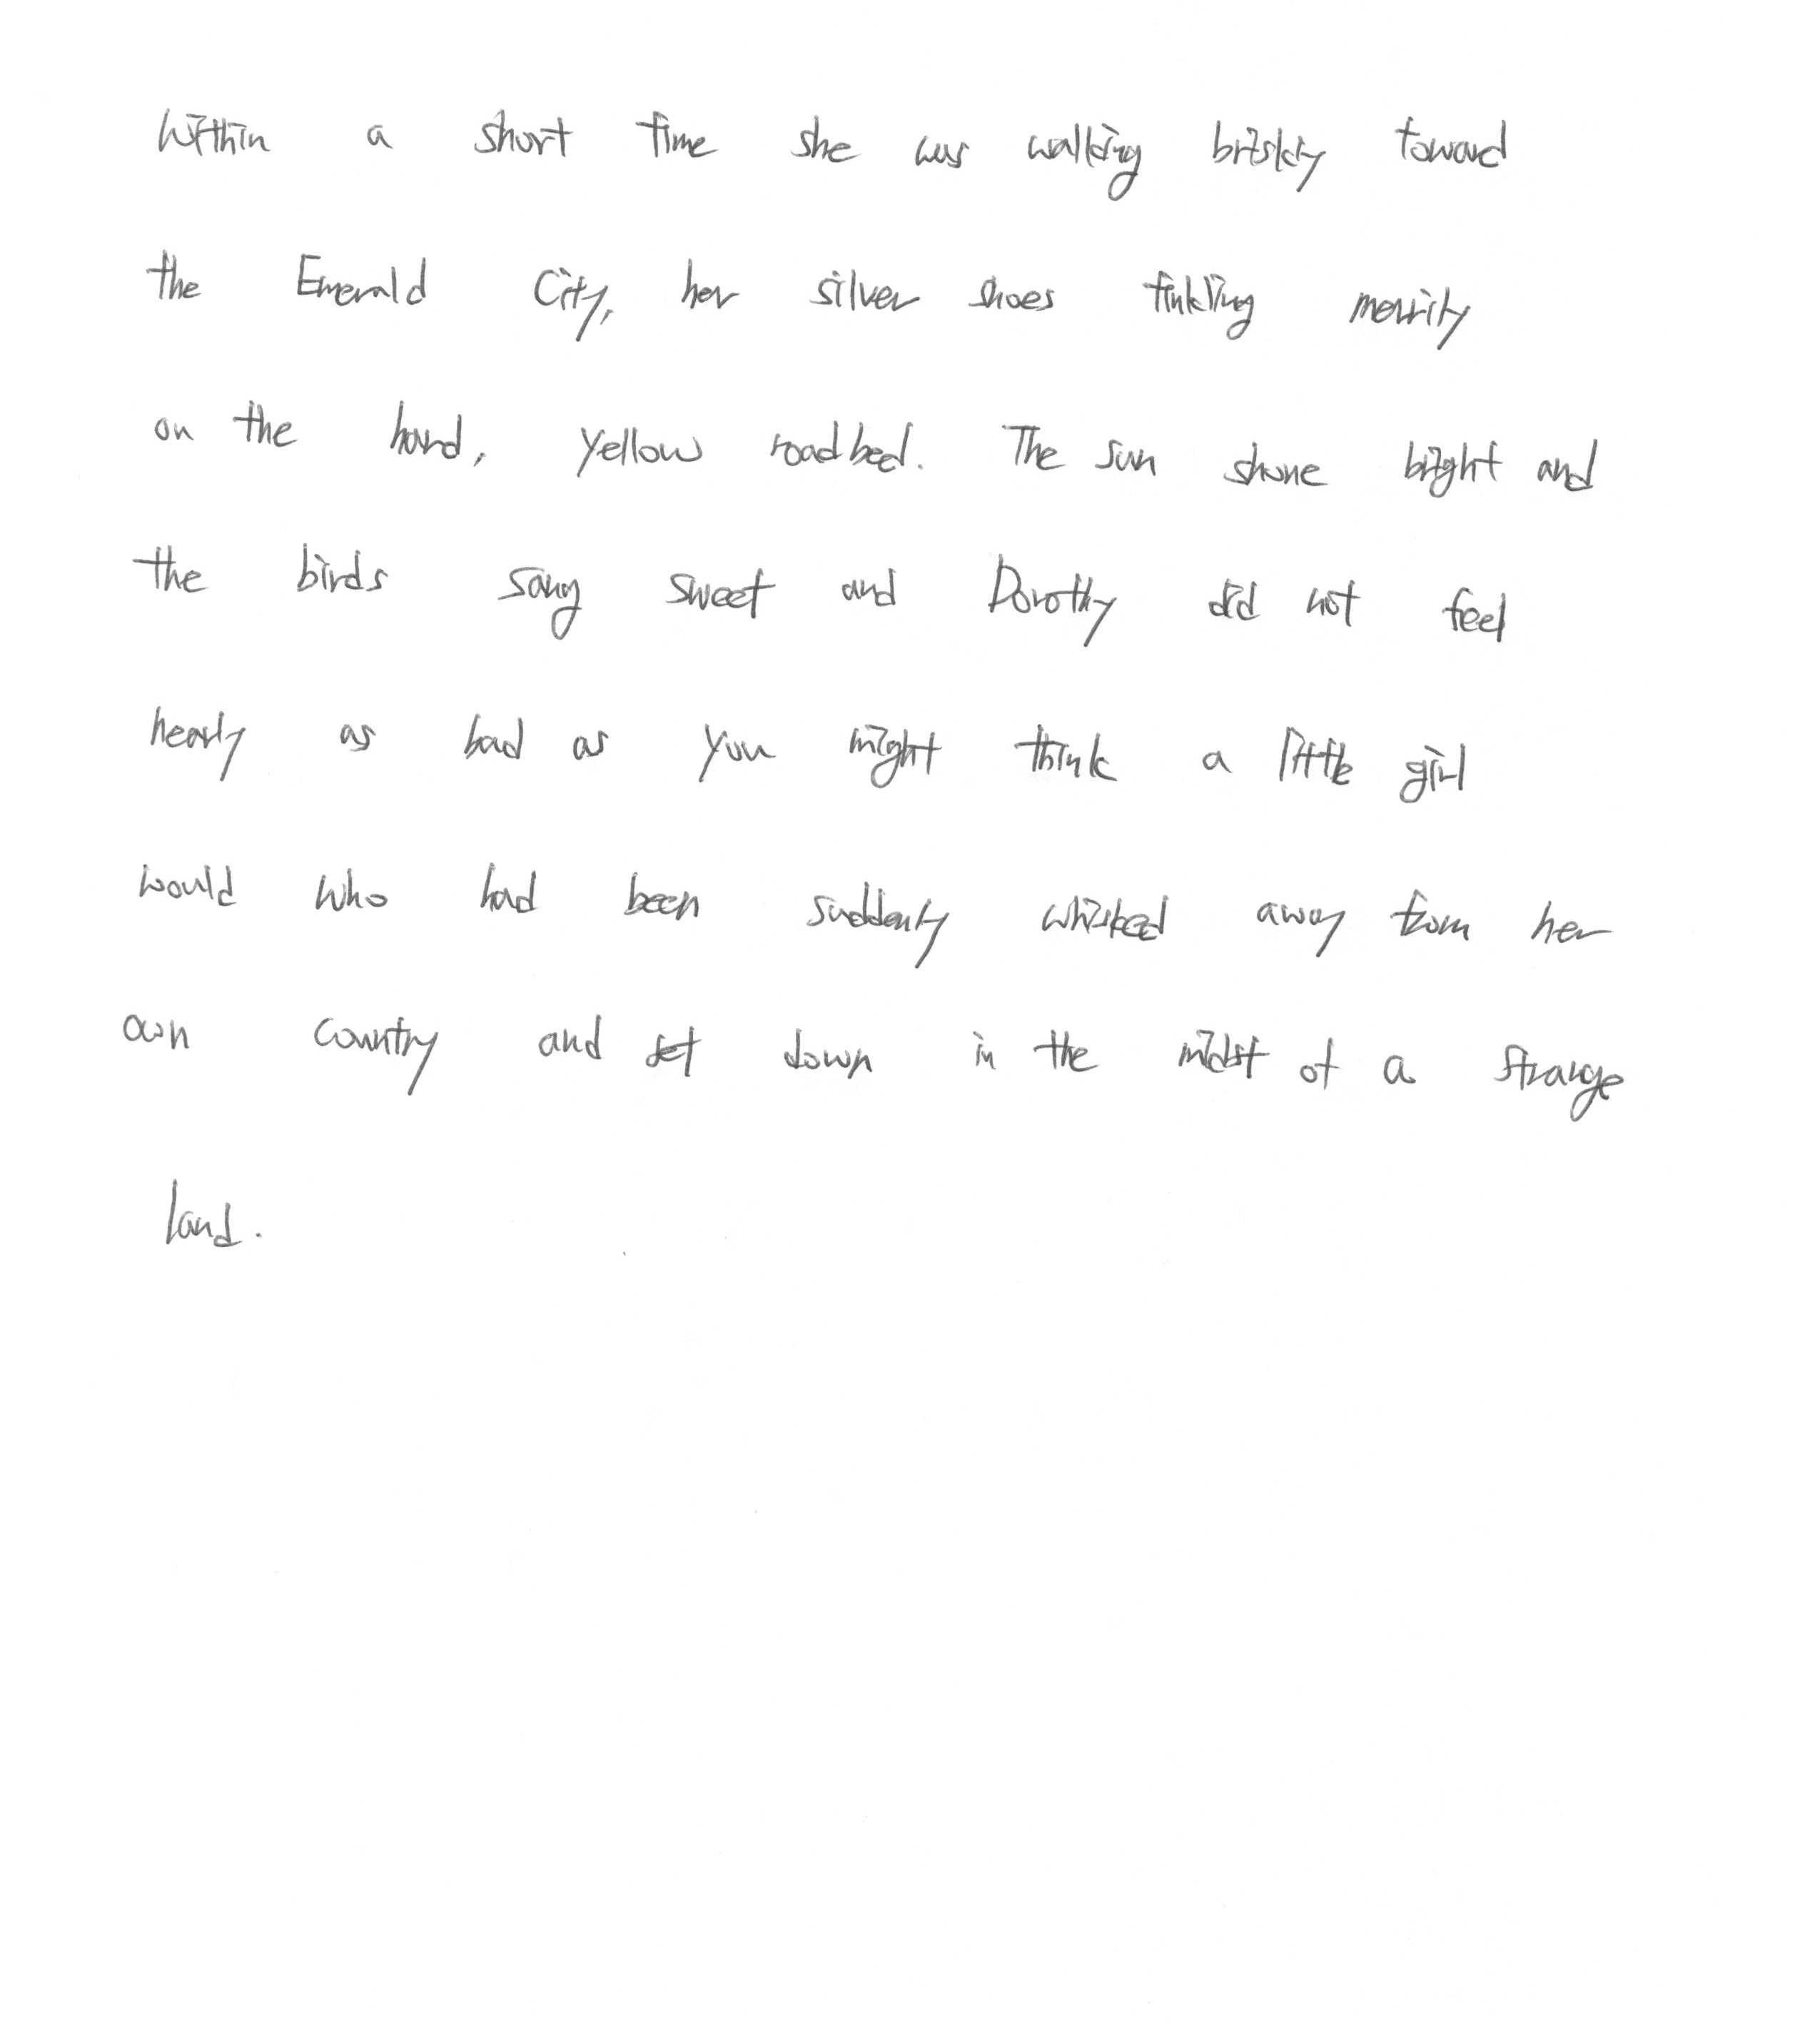 Within a short time she was walking briskly toward
the Emerald City, her silver shoes tinkling merrily
on the hard, yellow roadbed. The sun shone bright and
the birds sang sweet and Dorothy did not feel
nearly as bad as you might think a little girl
would who had been suddenly whisked away from her
own country and set down in the midst of a strange
land.